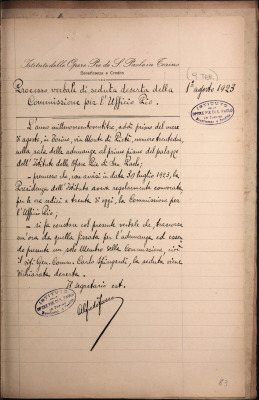 Istituto delle Opere Pie di S. Paolo in Torino
Beneficenza e Credito
9 TER
Processo verbale di seduta deserta della
Commissione per l'Ufficio Pio.
1° agosto 1923
ISTITUTO
OPERE PIE DI S. PAOLO
Beneficenza e Credito
L'anno millenovecentoventitre, addì primo del mese
d'agosto, in Torino, via Monte di Pietà, numero trentadue,
nella sala delle adunanze al primo piano del palazzo
dell'Istituto delle Opere Pie di San Paolo;
- premesso che con avvisi in data 30 luglio 1923, la
Presidenza dell'Istituto aveva regolarmente convocata,
per le ore sedici e trenta d'oggi, la Commissione per
l'Ufficio Pio;
- si fa constare col presente verbale che, trascorsa
un'ora da quella fissata per l'adunanza ed essen-
do presente un solo Membro della Commissione, cioè
il sig. Gen. Comm. Carlo, la seduta viene
dichiarata deserta.
Il Segretario est.
ISTITUTO
OPERE PIE DI S. PAOLO
Beneficenza e Credito